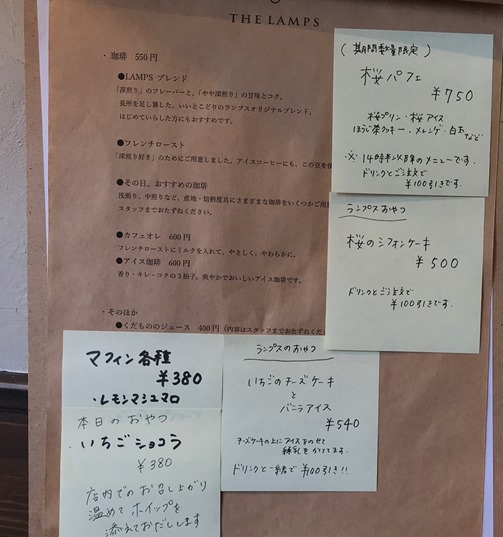 THE LAMPS
・珈琲 550円
●LAMPS ブレンド
「深煎り」のフレーバーと、「やや深煎り」の甘味とコク。
長所を足し算した、いいとこどりのランプスオリジナルブレンド。
はじめていらした方にもおすすめです。
●フレンチロースト
「深煎り好き」のためにご用意しました。アイスコーヒーにも、この豆を使
●その日、おすすめの珈琲
浅煎り、中煎りなど、産地・焙煎度共にさまざまな珈琲をいくつかご用
スタッフまでおたずねください。
●カフェオレ 600円
フレンチローストにミルクを入れて、やさしく、やわらかに。
●アイス珈琲 600円
香り・キレ・コクの3拍子。爽やかでおいしいアイス珈琲です。
・そのほか
●くだもののジュース 400円 (内容はスタッフまでおたずねくだ
(期間数量限定)
桜パフェ
¥750
桜プリン・桜アイス
ほうじ茶クッキー・メレンゲ・白玉など
※14時半以降のメニューです。
ドリンクとご注文で
¥100引きです。
ランプスおやつ
桜のシフォンケーキ
¥500
ドリンクとご注文で
¥100引きです。
マフィン各種
¥380
・レモンマシュマロ
本日のおやつ
・いちごショコラ
¥380
店内でのお召し上がり
温めてホイップを
添えておだしします
ランプスのおやつ
いちごのチーズケーキ
と
バニラアイス
¥540
チーズケーキの上にアイスをのせて
練乳をかけてます。
ドリンクと一緒で¥100引き!!